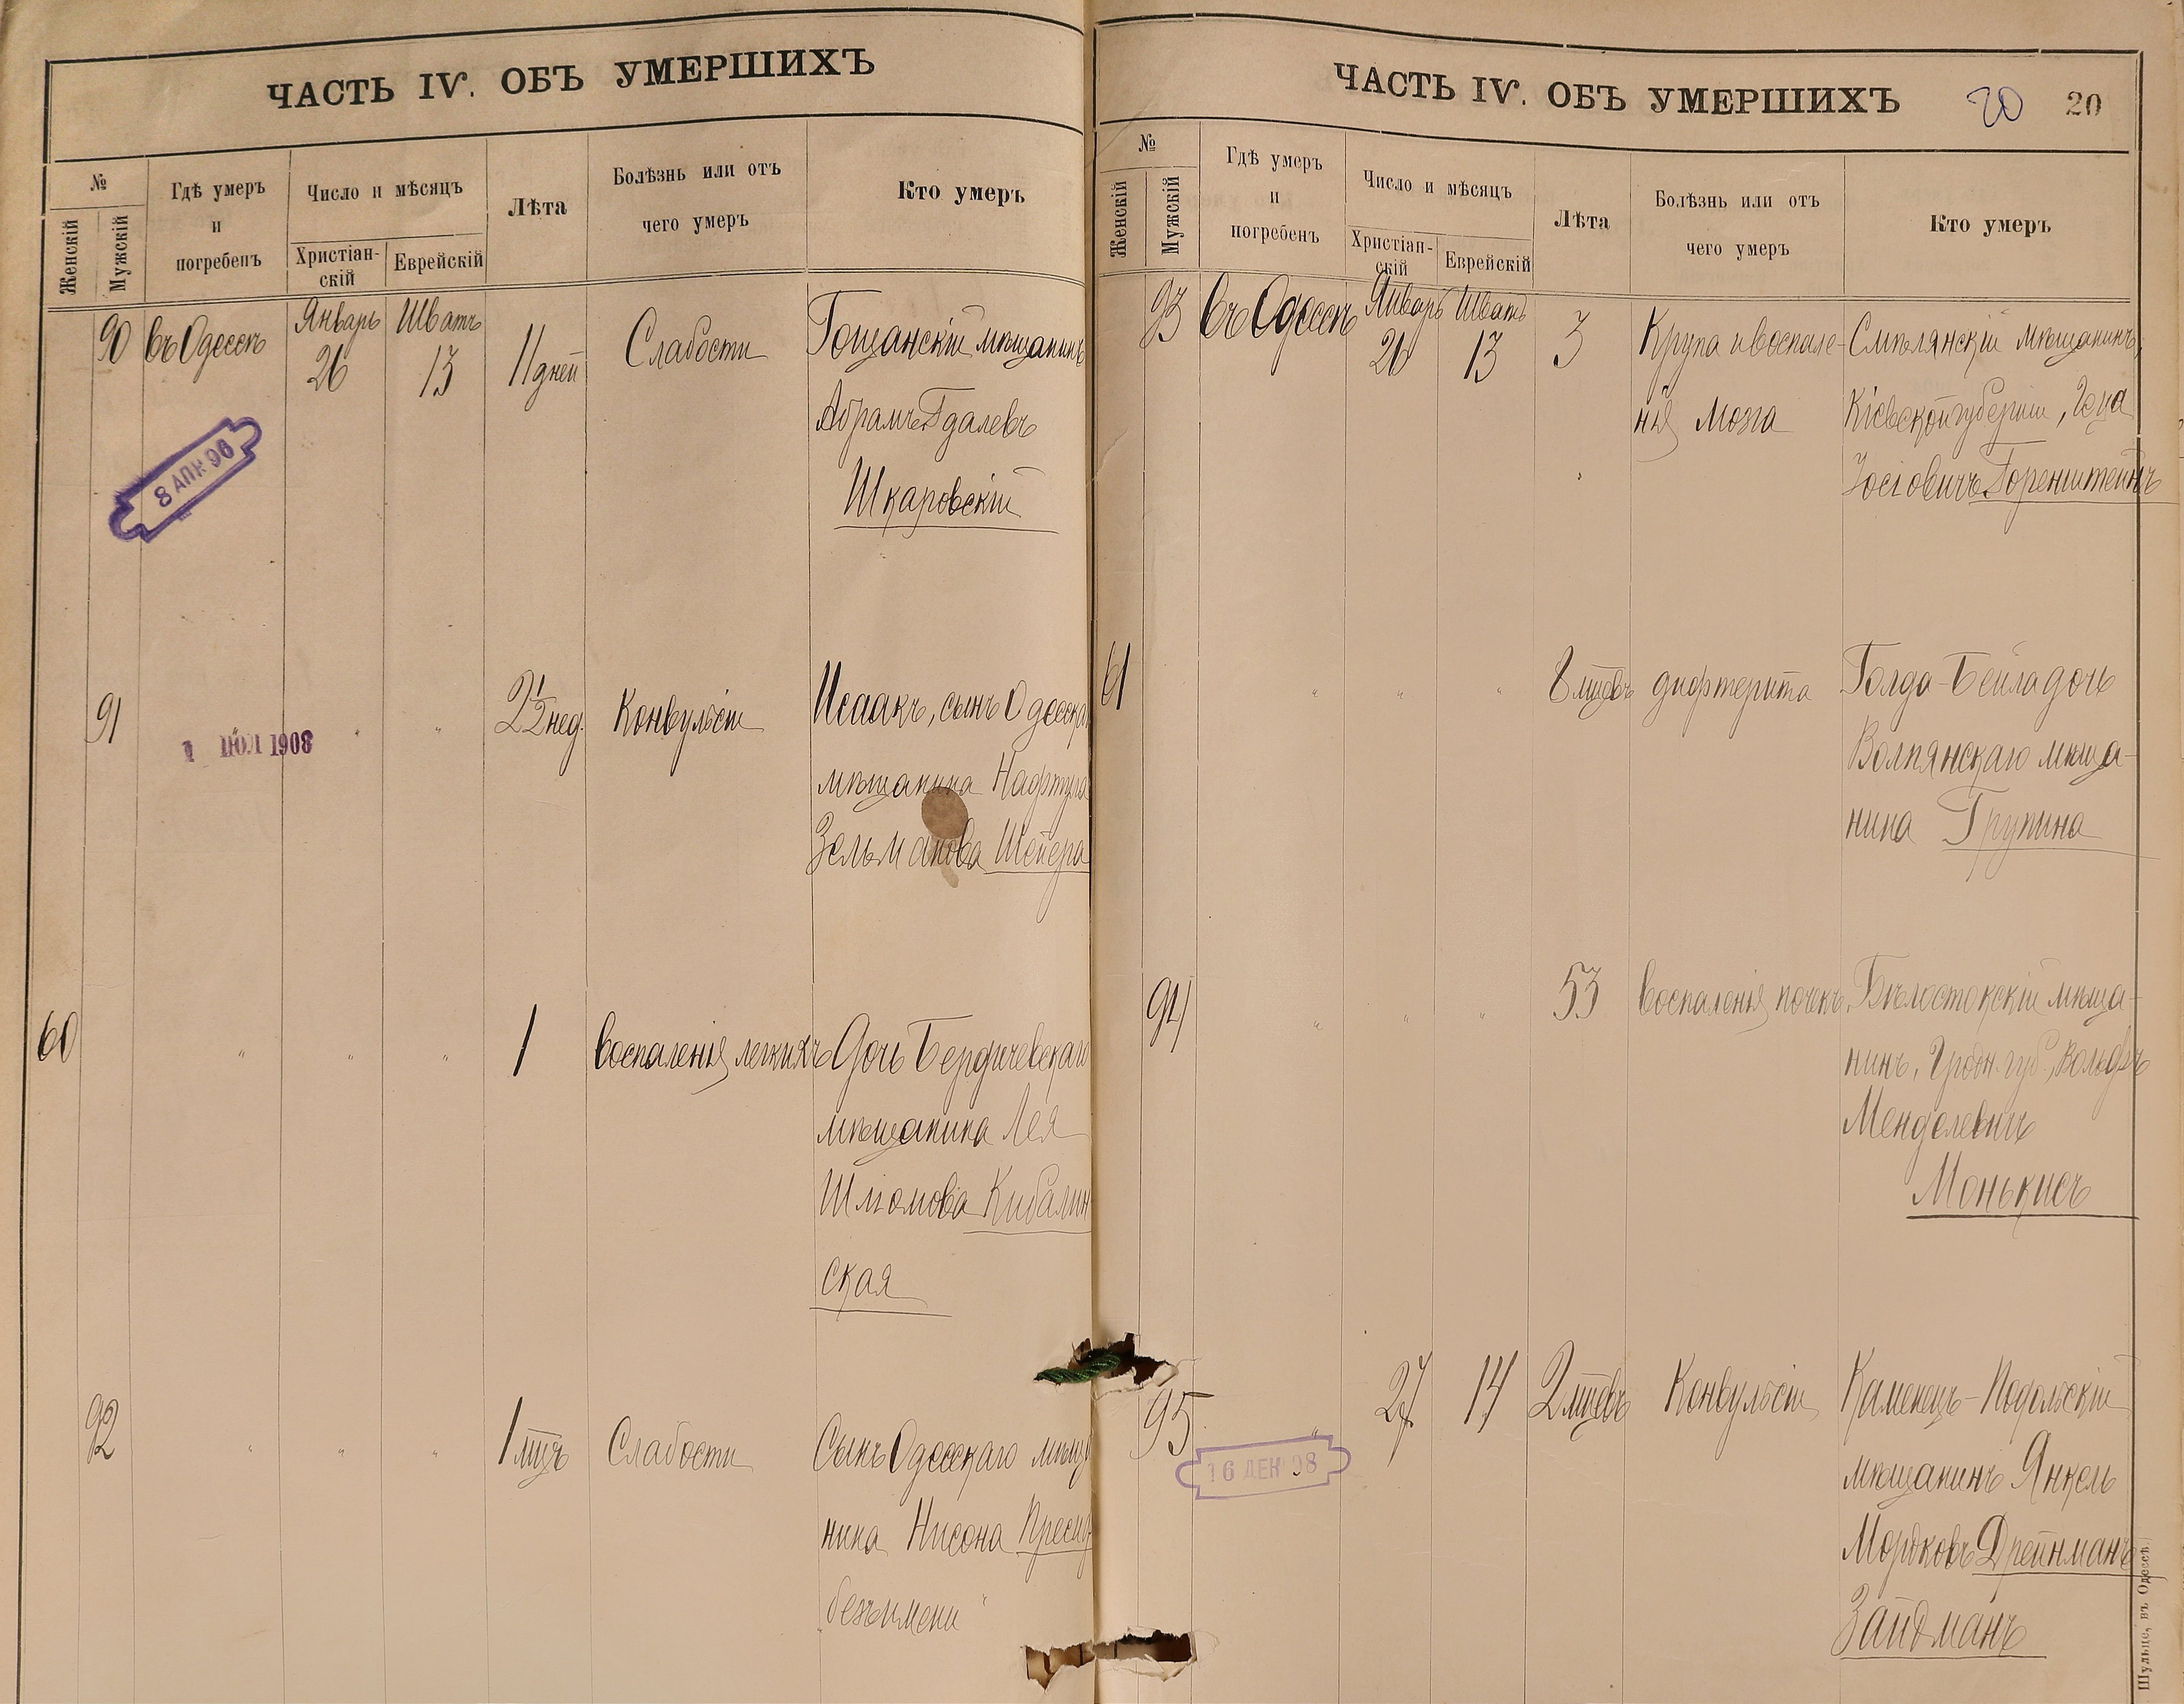 ЧАСТЬ IV. ОБЪ УМЕРШИХЪ
№
Женскій
Мужскій
Гдѣ умеръ
и
погребенъ
Число и мѣсяцъ
Христіан-
скій
Еврейскій
Лѣта
Болѣзнь или отъ
чего умеръ
Кто умеръ
90 въ Одессѣ Январь 26 Шватъ 13 11 дней Слабости Гощанскій мѣщанинъ
Абрамъ Гдалевъ
Шкаровскій
8 АПР 96
91 " " " 2½ нед. Конвульсіи Исаакъ, сынъ Одесска
мѣщанина Нафтула
Зельманова Шойера
1 ІЮЛ 1908
60 " " " 1 воспаленія легкихъ Дочь Бердичевскаго
мѣщанина Лея
Шліомова Кибалин
ская
92 " " " 1 мцъ Слабости Сынъ Одесскаго мѣща
нина Нисона
"безъ имени"
ЧАСТЬ IV. ОБЪ УМЕРШИХЪ 20 20
№
Женскій
Мужскій
Гдѣ умеръ
и
погребенъ
Число и мѣсяцъ
Христіан-
скій
Еврейскій
Лѣта
Болѣзнь или отъ
чего умеръ
Кто умеръ
93 въ Одессѣ Январь 26 Шватъ 13 3 Крупа и воспале- Смѣлянскій мѣщанинъ,
нія мозга Кіевской губерніи, Геца
Іосіовичъ Горенштейнъ
61 " " " 8 мцевъ дифтерита Голда-Бейла дочь
Волпянскаго мѣща-
нина Групина
94 " " " 53 воспаленія почекъ Бѣлостокскій мѣща-
нинъ, Гродн. губ., Вольфъ
Менделевичъ
Монькисъ
95 " 27 14 2 мцевъ Конвульсіи Каменецъ-Подольскій
мѣщанинъ Янкель
Мордковъ Дрейнманъ
Зайдманъ
16 ДЕК 98
Шульце, въ Одессѣ